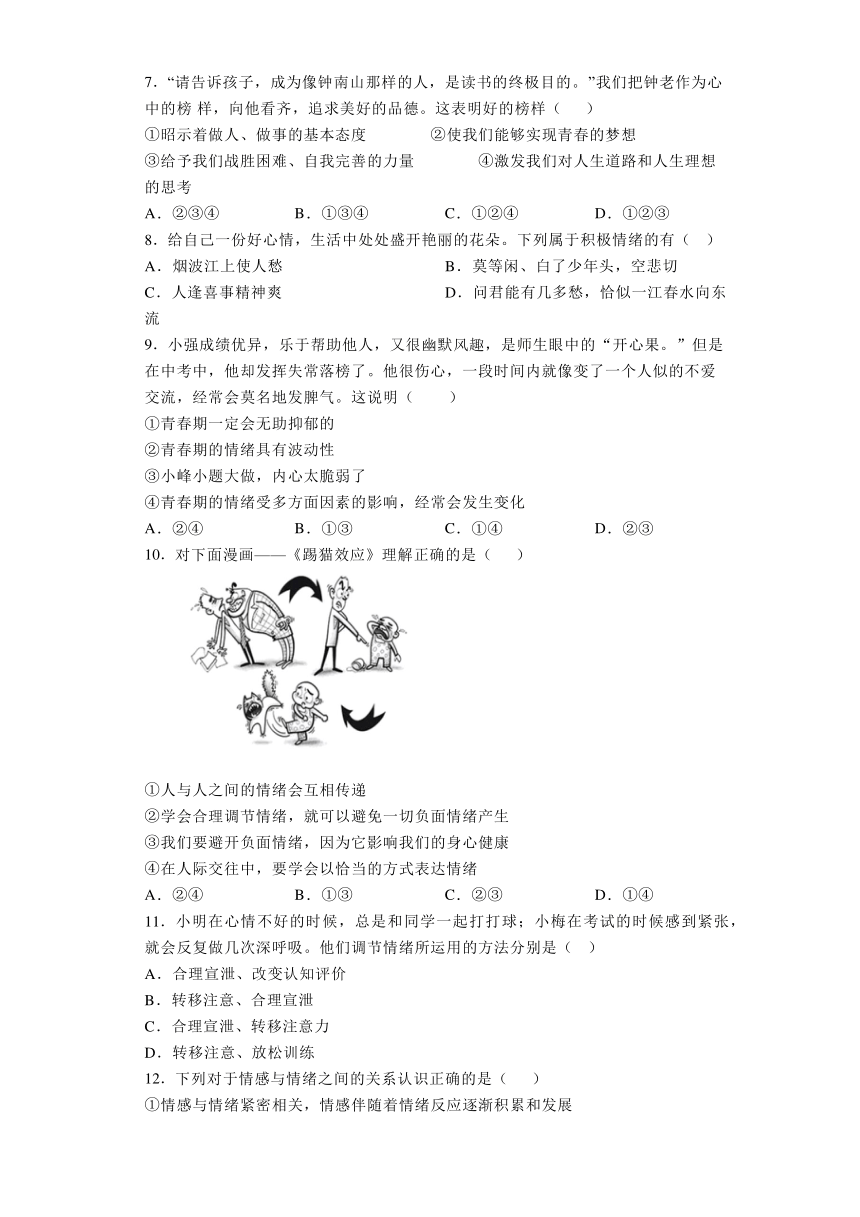 7．“请告诉孩子，成为像钟南山那样的人，是读书的终极目的。”我们把钟老作为心
中的榜 样，向他看齐，追求美好的品德。这表明好的榜样（   ）
①昭示着做人、做事的基本态度   ②使我们能够实现青春的梦想
③给予我们战胜困难、自我完善的力量   ④激发我们对人生道路和人生理想
的思考
A．②③④   B．①③④   C．①②④   D．①②③
8．给自己一份好心情，生活中处处盛开艳丽的花朵。下列属于积极情绪的有（   ）
A．烟波江上使人愁   B．莫等闲、白了少年头，空悲切
C．人逢喜事精神爽   D．问君能有几多愁，恰似一江春水向东
流
9．小强成绩优异，乐于帮助他人，又很幽默风趣，是师生眼中的“开心果。”但是
在中考中，他却发挥失常落榜了。他很伤心，一段时间内就像变了一个人似的不爱
交流，经常会莫名地发脾气。这说明（   ）
①青春期一定会无助抑郁的
②青春期的情绪具有波动性
③小峰小题大做，内心太脆弱了
④青春期的情绪受多方面因素的影响，经常会发生变化
A．②④   B．①③   C．①④   D．②③
10．对下面漫画——《踢猫效应》理解正确的是（   ）
①人与人之间的情绪会互相传递
②学会合理调节情绪，就可以避免一切负面情绪产生
③我们要避开负面情绪，因为它影响我们的身心健康
④在人际交往中，要学会以恰当的方式表达情绪
A．②④   B．①③   C．②③   D．①④
11．小明在心情不好的时候，总是和同学一起打打球；小梅在考试的时候感到紧张，
就会反复做几次深呼吸。他们调节情绪所运用的方法分别是（   ）
A．合理宣泄、改变认知评价
B．转移注意、合理宣泄
C．合理宣泄、转移注意力
D．转移注意、放松训练
12．下列对于情感与情绪之间的关系认识正确的是（   ）
①情感与情绪紧密相关，情感伴随着情绪反应逐渐积累和发展